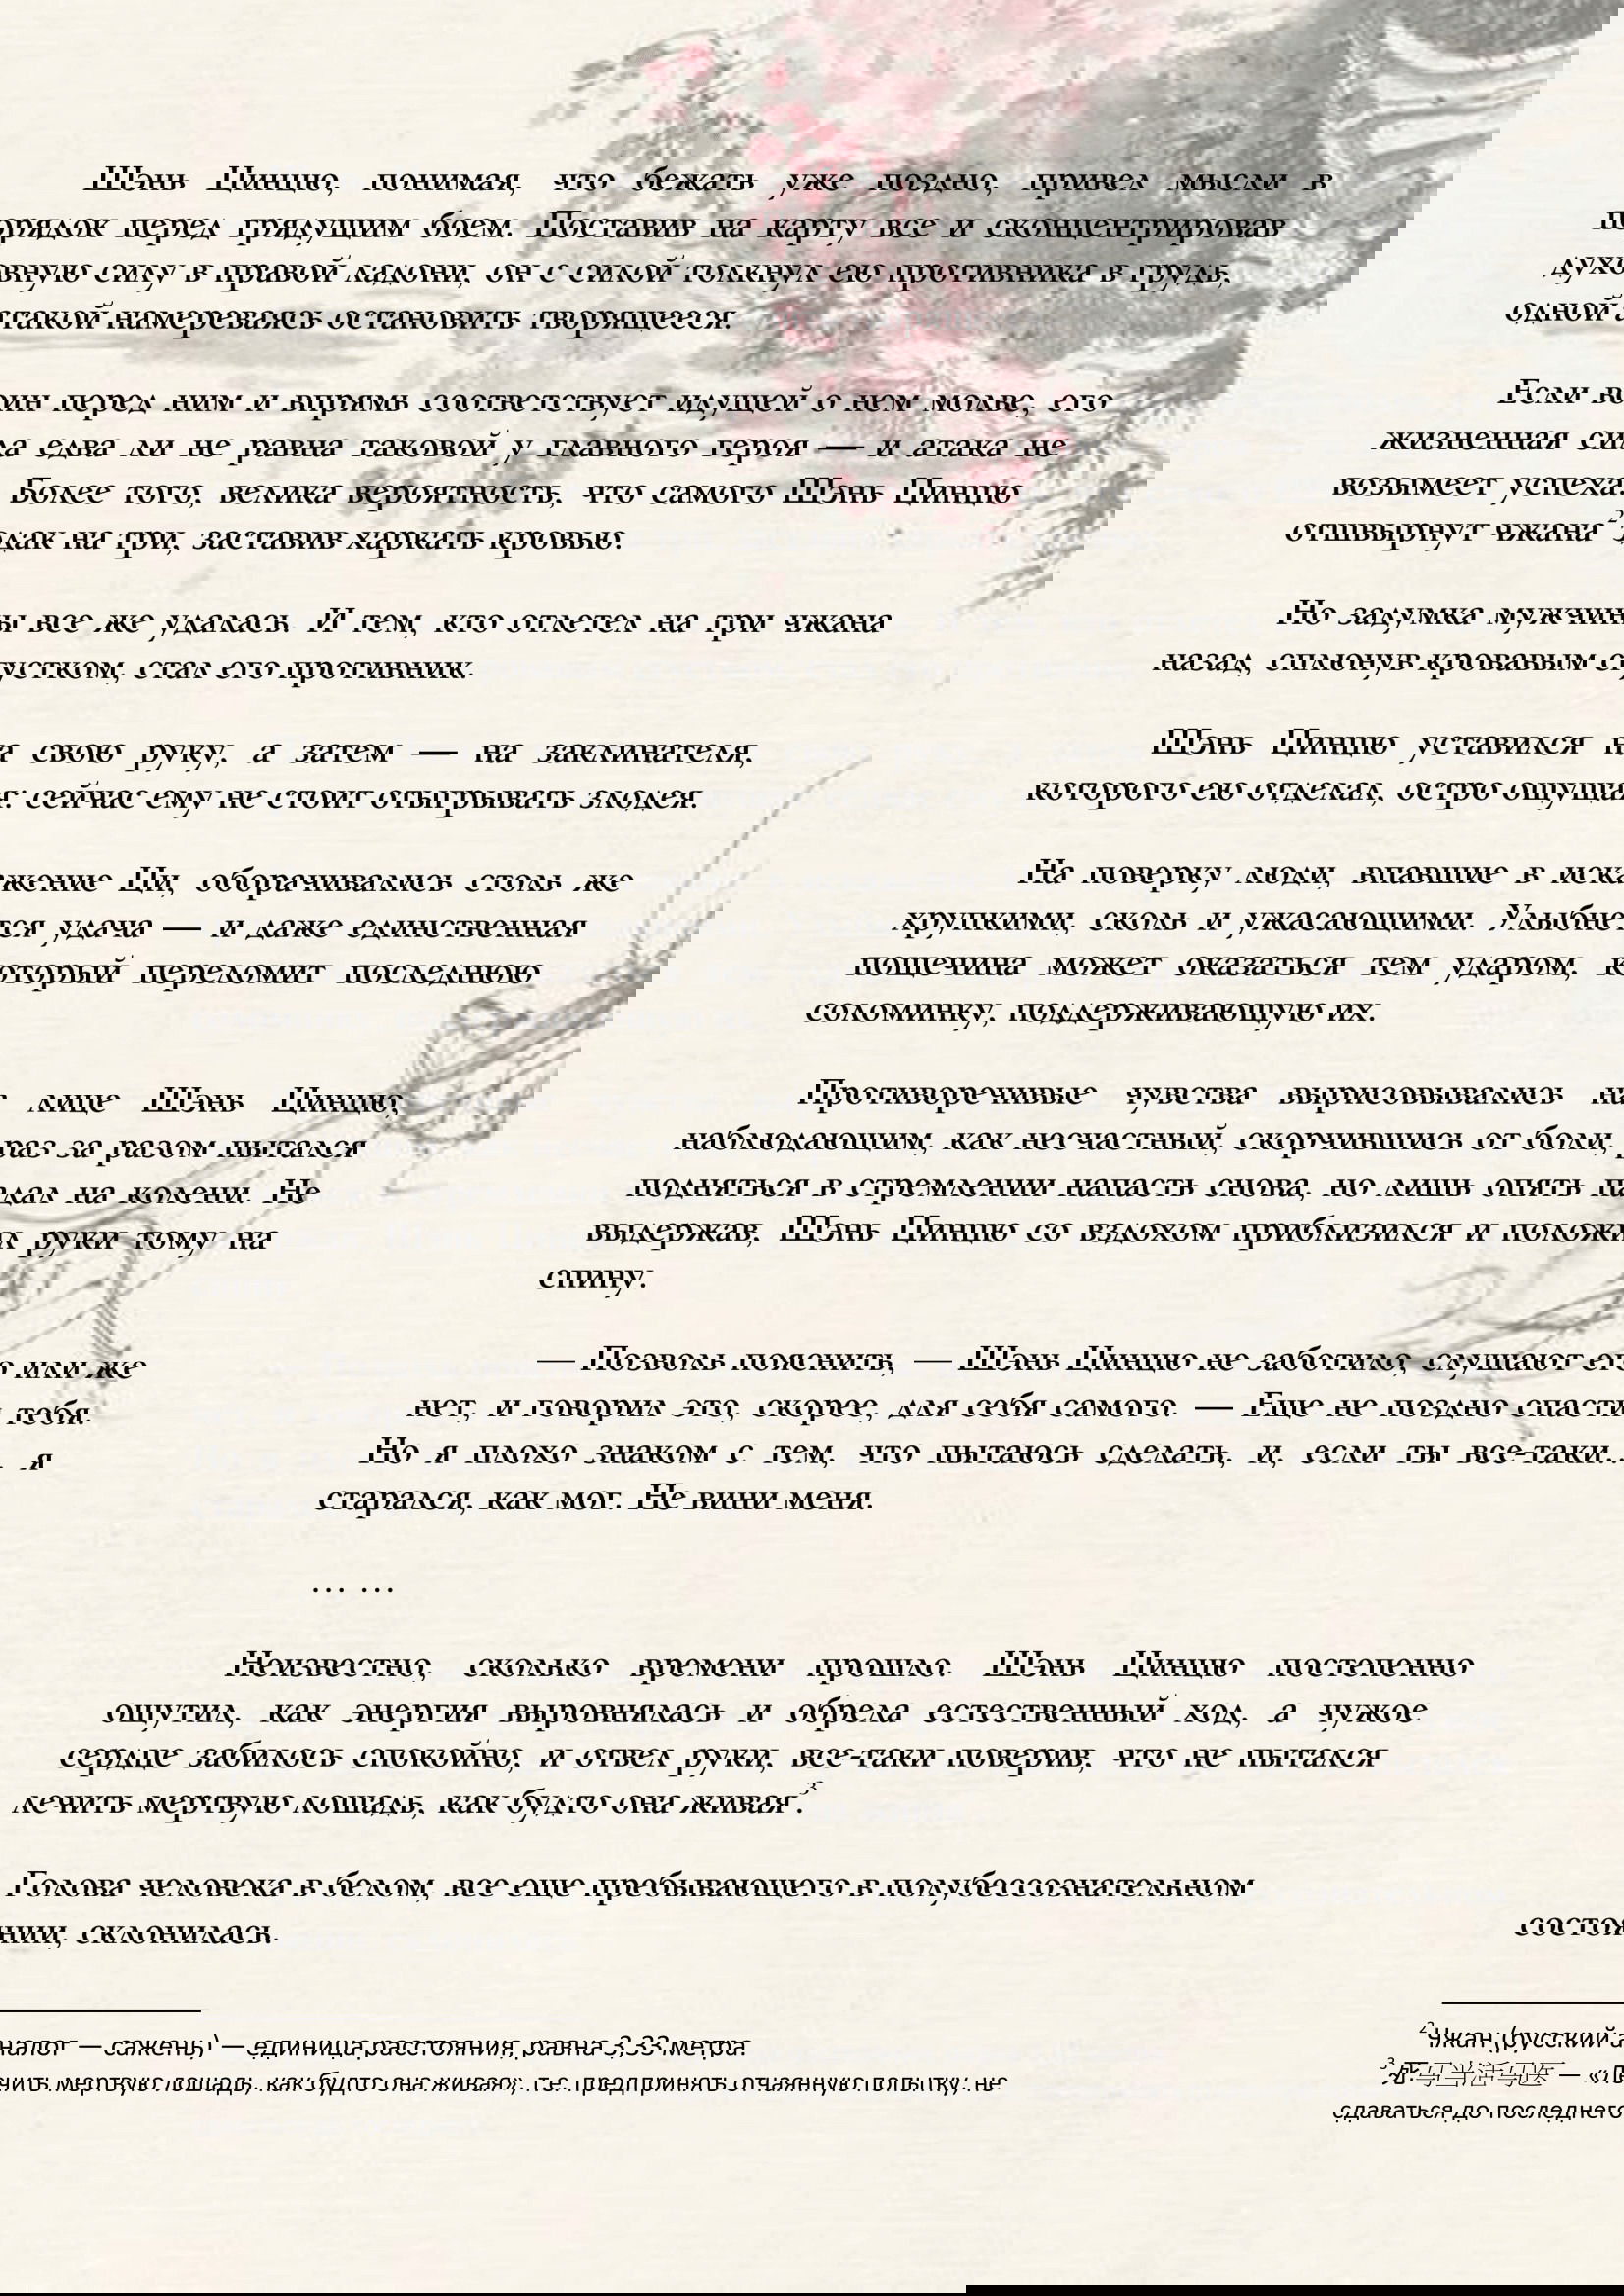 Шэнь Цинцю, понимая, что бежать уже поздно, привел мысли в
порядок перед грядущим боем. Поставив на карту все и сконцентрировав
духовную силу в правой ладони, он с силой толкнул ею противника в грудь,
одной атакой намереваясь остановить творящееся.
Если воин перед ним и впрямь соответствует идущей о нем молве, его
жизненная сила едва ли не равна таковой у главного героя — и атака не
возымеет успеха. Более того, велика вероятность, что самого Шэнь Цинцю
отшвырнут чжана² эдак на три, заставив харкать кровью.
Но задумка мужчины все же удалась. И тем, кто отлетел на три чжана
назад, сплюнув кровавым сгустком, стал его противник.
Шэнь Цинцю уставился на свою руку, а затем — на заклинателя,
которого ею отделал, остро ощущая: сейчас ему не стоит отыгрывать злодея.
На поверку люди, впавшие в искажение Ци, оборачивались столь же
хрупкими, сколь и ужасающими. Улыбнется удача — и даже единственная
пощечина может оказаться тем ударом, который переломит последнюю
соломинку, поддерживающую их.
Противоречивые чувства вырисовывались на лице Шэнь Цинцю,
наблюдающим, как несчастный, скорчившись от боли, раз за разом пытался
подняться в стремлении напасть снова, но лишь опять падал на колени. Не
выдержав, Шэнь Цинцю со вздохом приблизился и положил руки тому на
спину.
— Позволь пояснить, — Шэнь Цинцю не заботило, слушают его или же
нет, и говорил это, скорее, для себя самого. — Еще не поздно спасти тебя.
Но я плохо знаком с тем, что пытаюсь сделать, и, если ты все-таки... я
старался, как мог. Не вини меня.
… …
Неизвестно, сколько времени прошло. Шэнь Цинцю постепенно
ощутил, как энергия выровнялась и обрела естественный ход, а чужое
сердце забилось спокойно, и отвел руки, все-таки поверив, что не пытался
лечить мертвую лошадь, как будто она живая³.
Голова человека в белом, все еще пребывающего в полубессознательном
состоянии, склонилась.
² Чжан (русский аналог — сажень) — единица расстояния, равна 3,33 метра.
³ 死马当活马医 — «Лечить мертвую лошадь, как будто она живая», т.е. предпринять отчаянную попытку; не
сдаваться до последнего